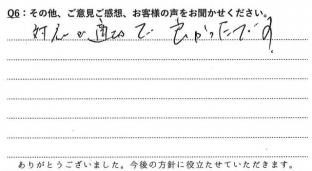 Q6：その他、ご意見ご感想、お客様の声をお聞かせください。
対応が適切で良かったです。
ありがとうございました。今後の方針に役立たせていただきます。